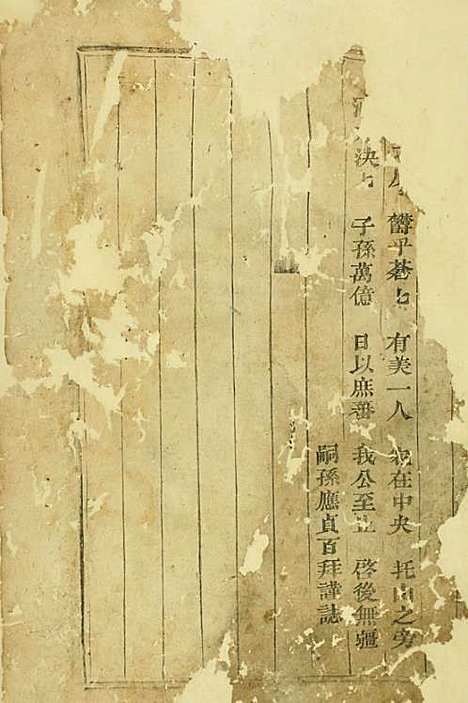 鬱乎蒼〻 有美一人 在中央 托山之旁
決〻 子孫萬億 日以庶蕃 我公至止 啓後無疆
嗣孫應貞百拜謹誌